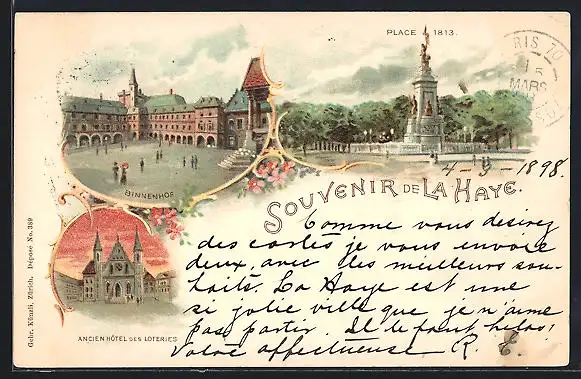 PLACE 1813.
RIS 70
15
MARS
BINNENHOF
4-3-1898.
SOUVENIR DE LA HAYE.
Comme vous desirez
des cartes je vous envoie
deux, avec des meilleurs sou-
haits. La Haye est une
si jolie ville que je n'aime
pas partir. Il le faut helas!
Votre affectueuse R. E.
ANCIEN HÔTEL DES LOTERIES
Gebr. Künzli, Zürich. Déposé No. 389